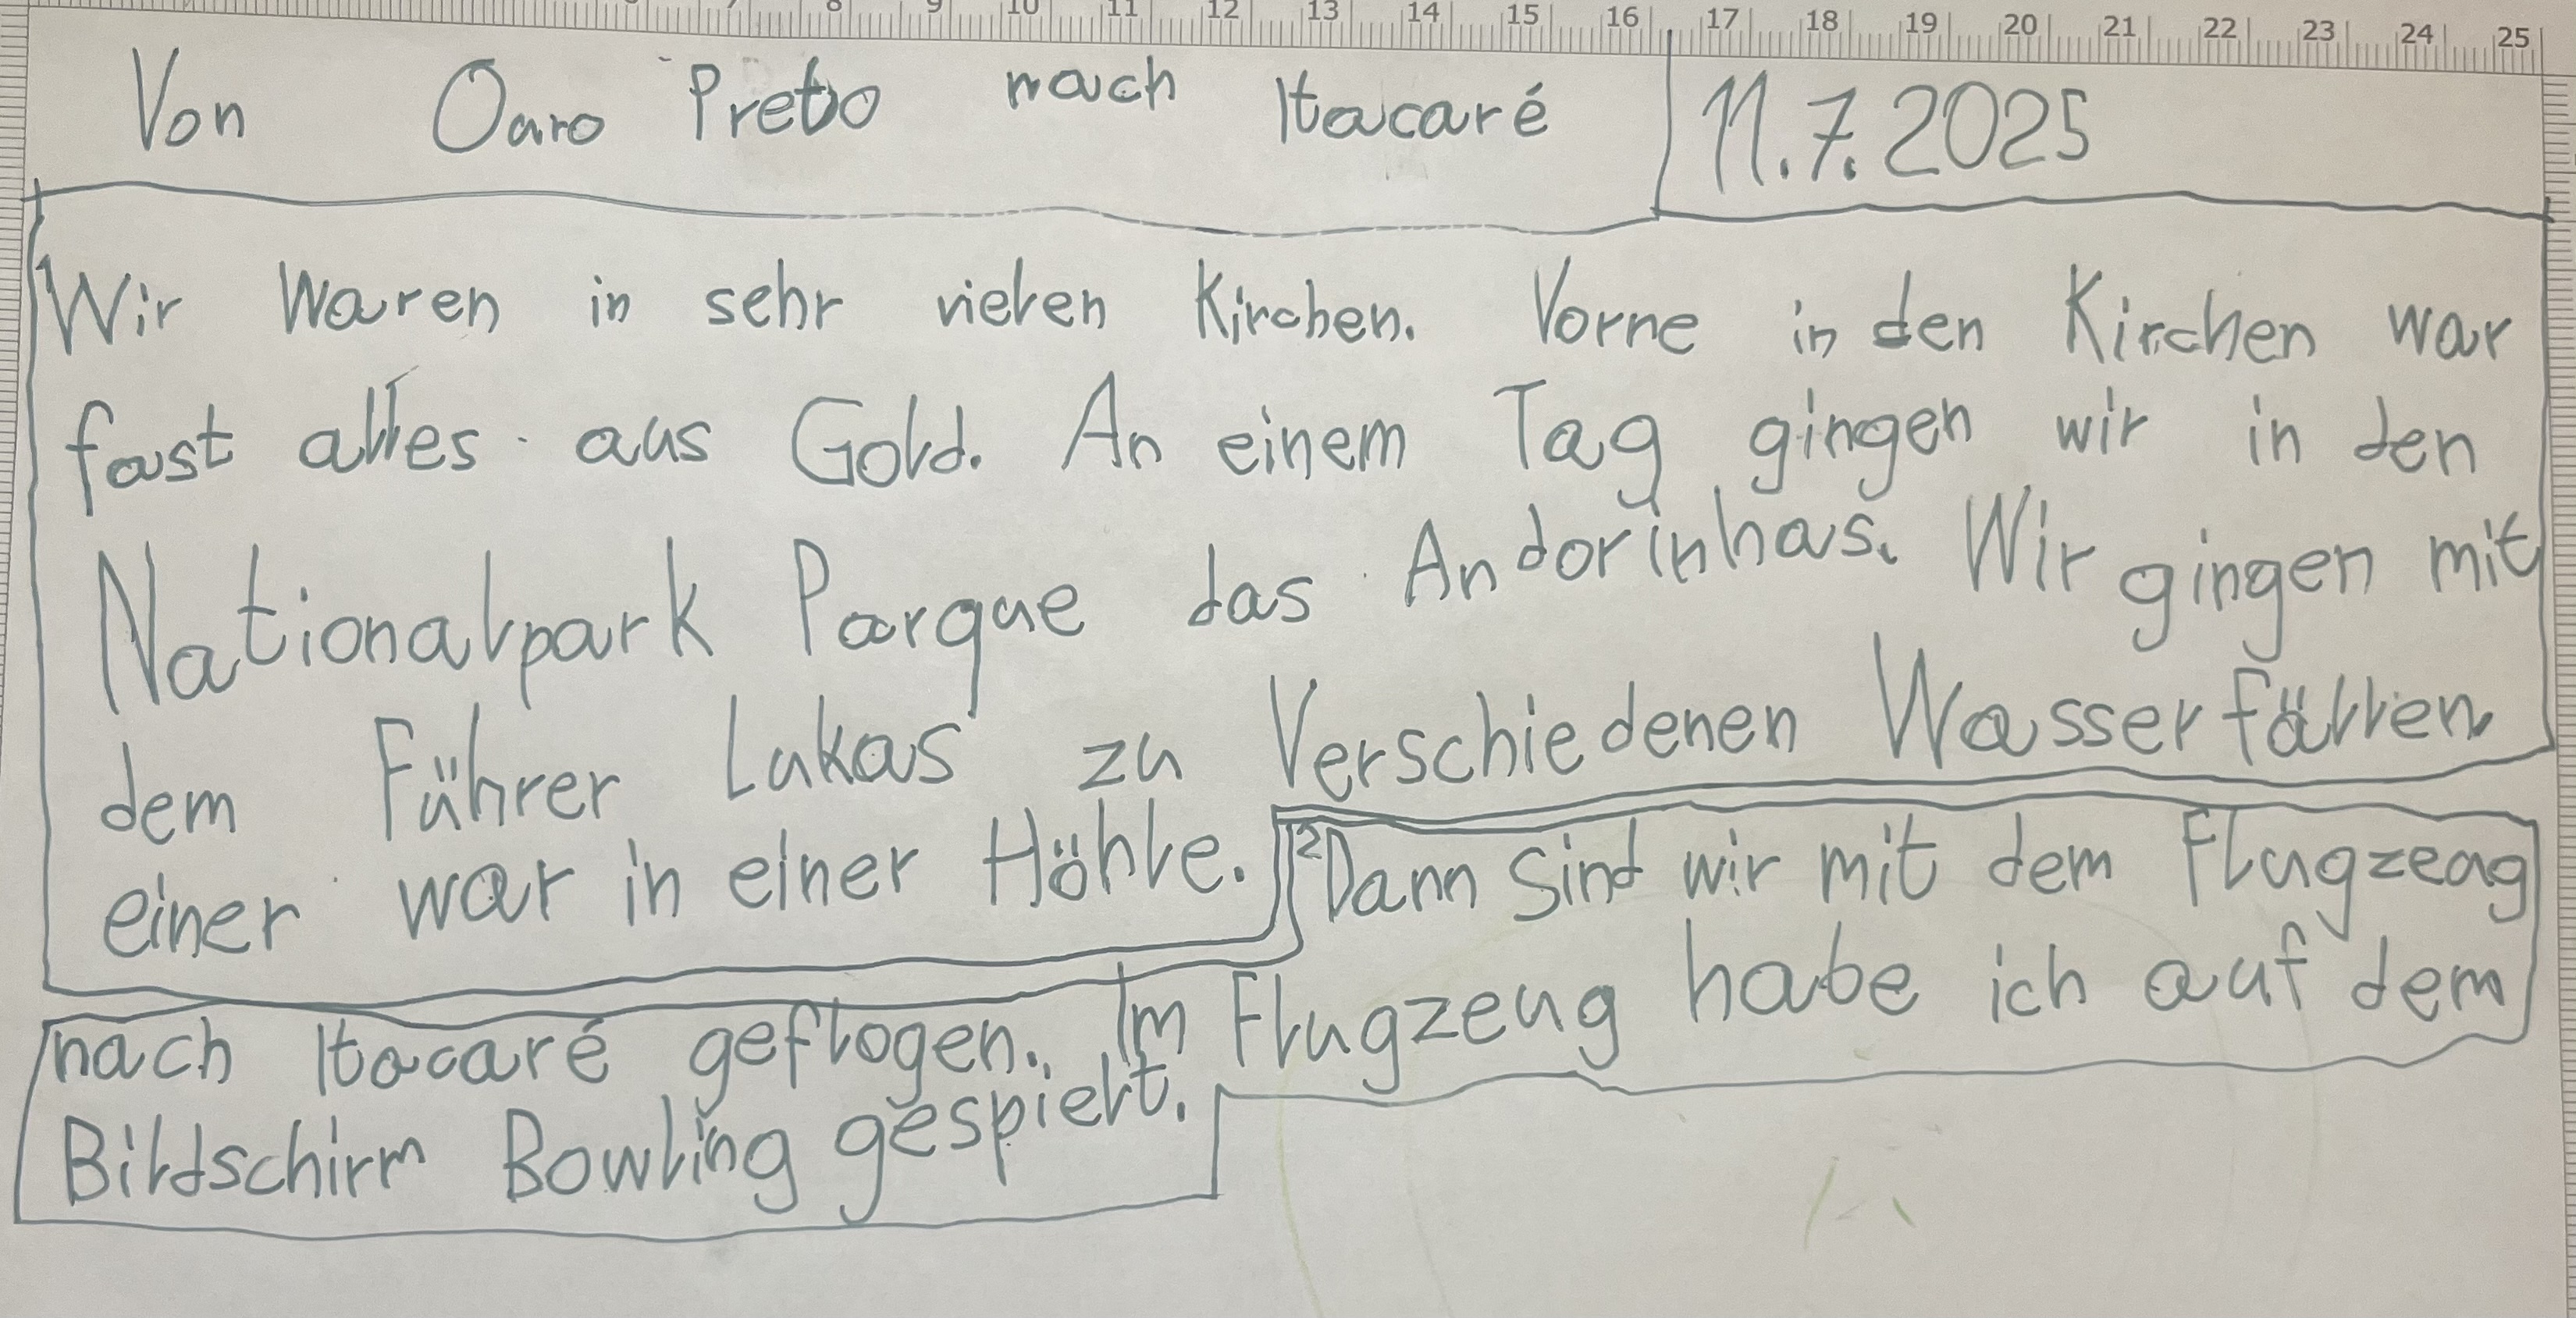 7 8 9 10 11 12 13 14 15 16 17 18 19 20 21 22 23 24 25
Von Ouro Preto nach Itacaré
11.7.2025
Wir waren in sehr vielen Kirchen. Vorne in den Kirchen war
fast alles aus Gold. An einem Tag gingen wir in den
Nationalpark Parque das Andorinhas. Wir gingen mit
dem Führer Lukas zu Verschiedenen Wasserfällen
einer war in einer Höhle.
2 Dann Sind wir mit dem Flugzeug
nach Itacaré geflogen. Im Flugzeug habe ich auf dem
Bildschirm Bowling gespielt.